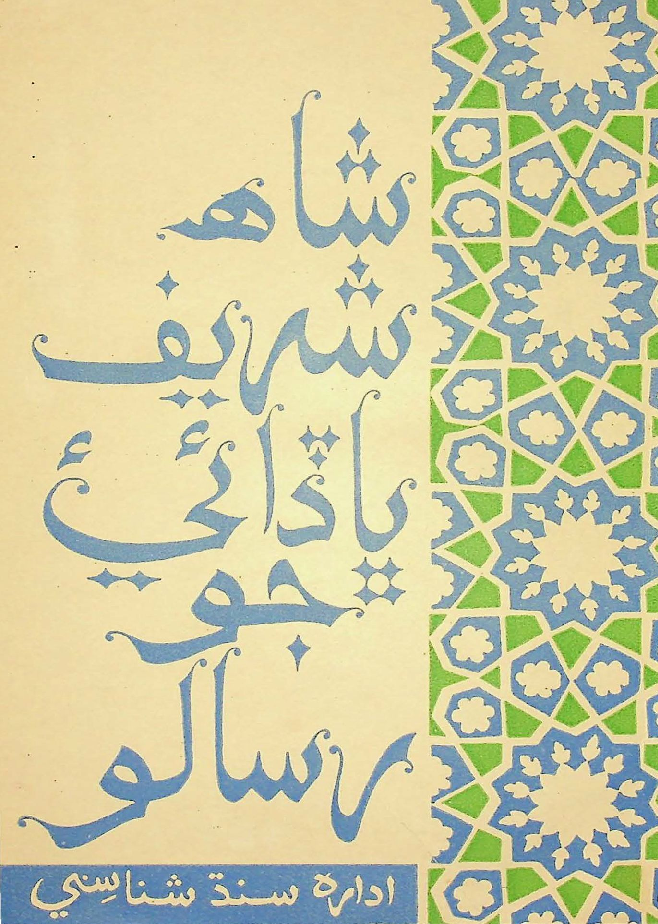 شاهه
شريف
ڀاڏائيءَ
جو
رسالو
اداره سنڌ شناسي